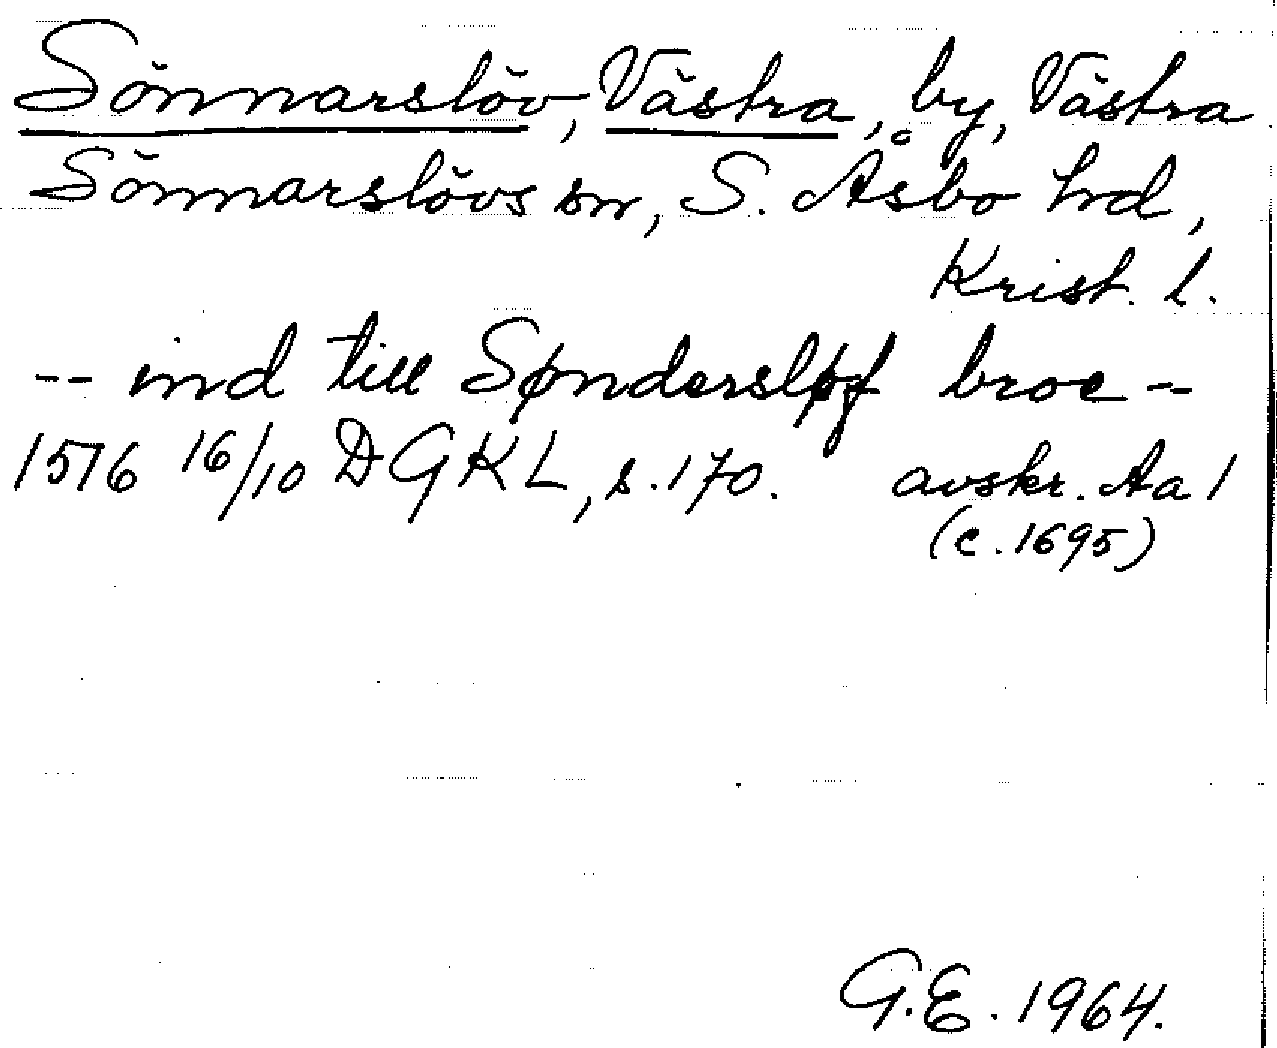 Sönnarslöv, Västra, by, Västra
Sönnarslövs sn, S. Åsbo hd,
Krist. l.
-- ind till Søndersløf broe --
1576 16/10 DGKL, s. 170. avskr. Aa 1
(c. 1695)
G.E. 1964.